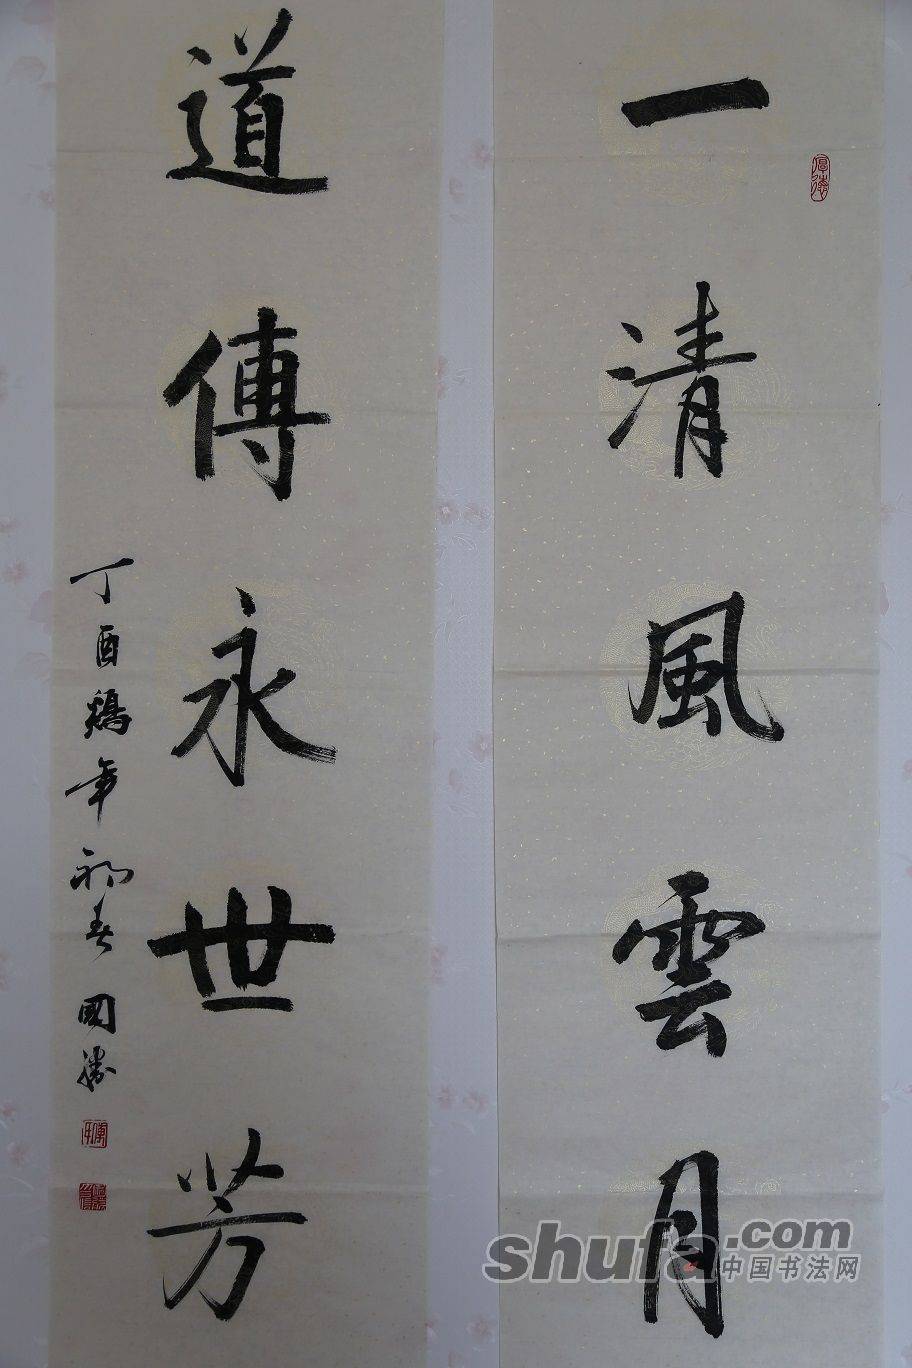 一清風雲月
道傳永世芳
丁酉鷄年初春 國勝
厚德
shufa.com
中国书法网